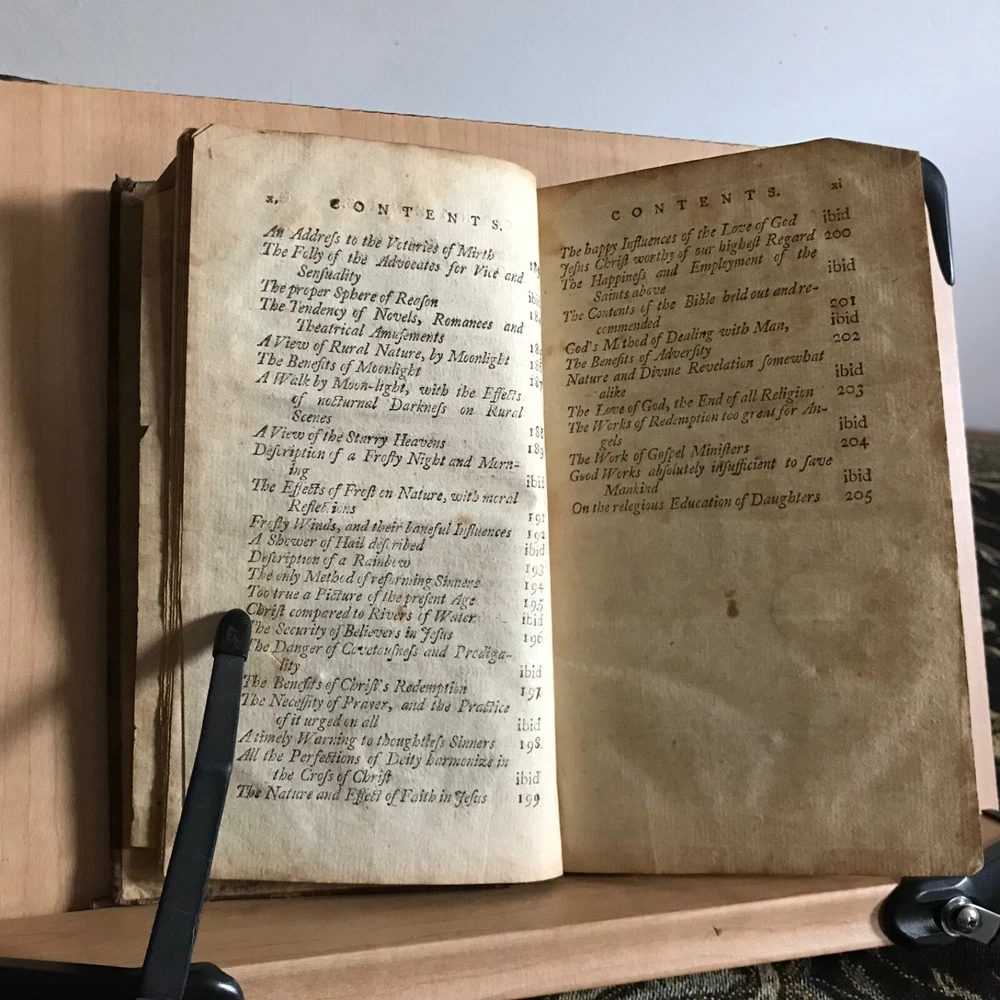 x,
CONTENTS.
An Addreſs to the Votaries of Mirth
The Folly of the Advocates for Vice and
Senſuality
The proper Sphere of Reaſon ibid
The Tendency of Novels, Romances and
Theatrical Amuſements
A View of Rural Nature, by Moonlight
The Benefits of Moonlight
A Walk by Moon-light, with the Effects 187
of nocturnal Darkneſs on Rural
Scenes 188
A View of the Starry Heavens 189
Deſcription of a Froſty Night and Morn-
ing ibid
The Effects of Froſt on Nature, with moral
Reflections 191
Froſty Winds, and their baneful Influences 192
A Shower of Hail deſcribed ibid
Deſcription of a Rainbow 193
The only Method of reforming Sinners 194
Too true a Picture of the preſent Age 195
Chriſt compared to Rivers of Water ibid
The Security of Believers in Jeſus 196
The Danger of Covetouſneſs and Prodiga-
lity ibid
The Benefits of Chriſt's Redemption 197
The Neceſſity of Prayer, and the Practice
of it urged on all ibid
A timely Warning to thoughtleſs Sinners 198
All the Perfections of Deity harmonize in
the Croſs of Chriſt ibid
The Nature and Effect of Faith in Jeſus 199
xi
CONTENTS.
The happy Influences of the Love of God ibid
Jeſus Chriſt worthy of our higheſt Regard 200
The Happineſs and Employment of the
Saints above ibid
The Contents of the Bible held out and re-
commended 201
God's Method of Dealing with Man, ibid
The Benefits of Adverſity 202
Nature and Divine Revelation ſomewhat
alike ibid
The Love of God, the End of all Religion 203
The Works of Redemption too great for An-
gels ibid
The Work of Goſpel Miniſters 204
Good Works abſolutely inſufficient to ſave
Mankind ibid
On the relegious Education of Daughters 205